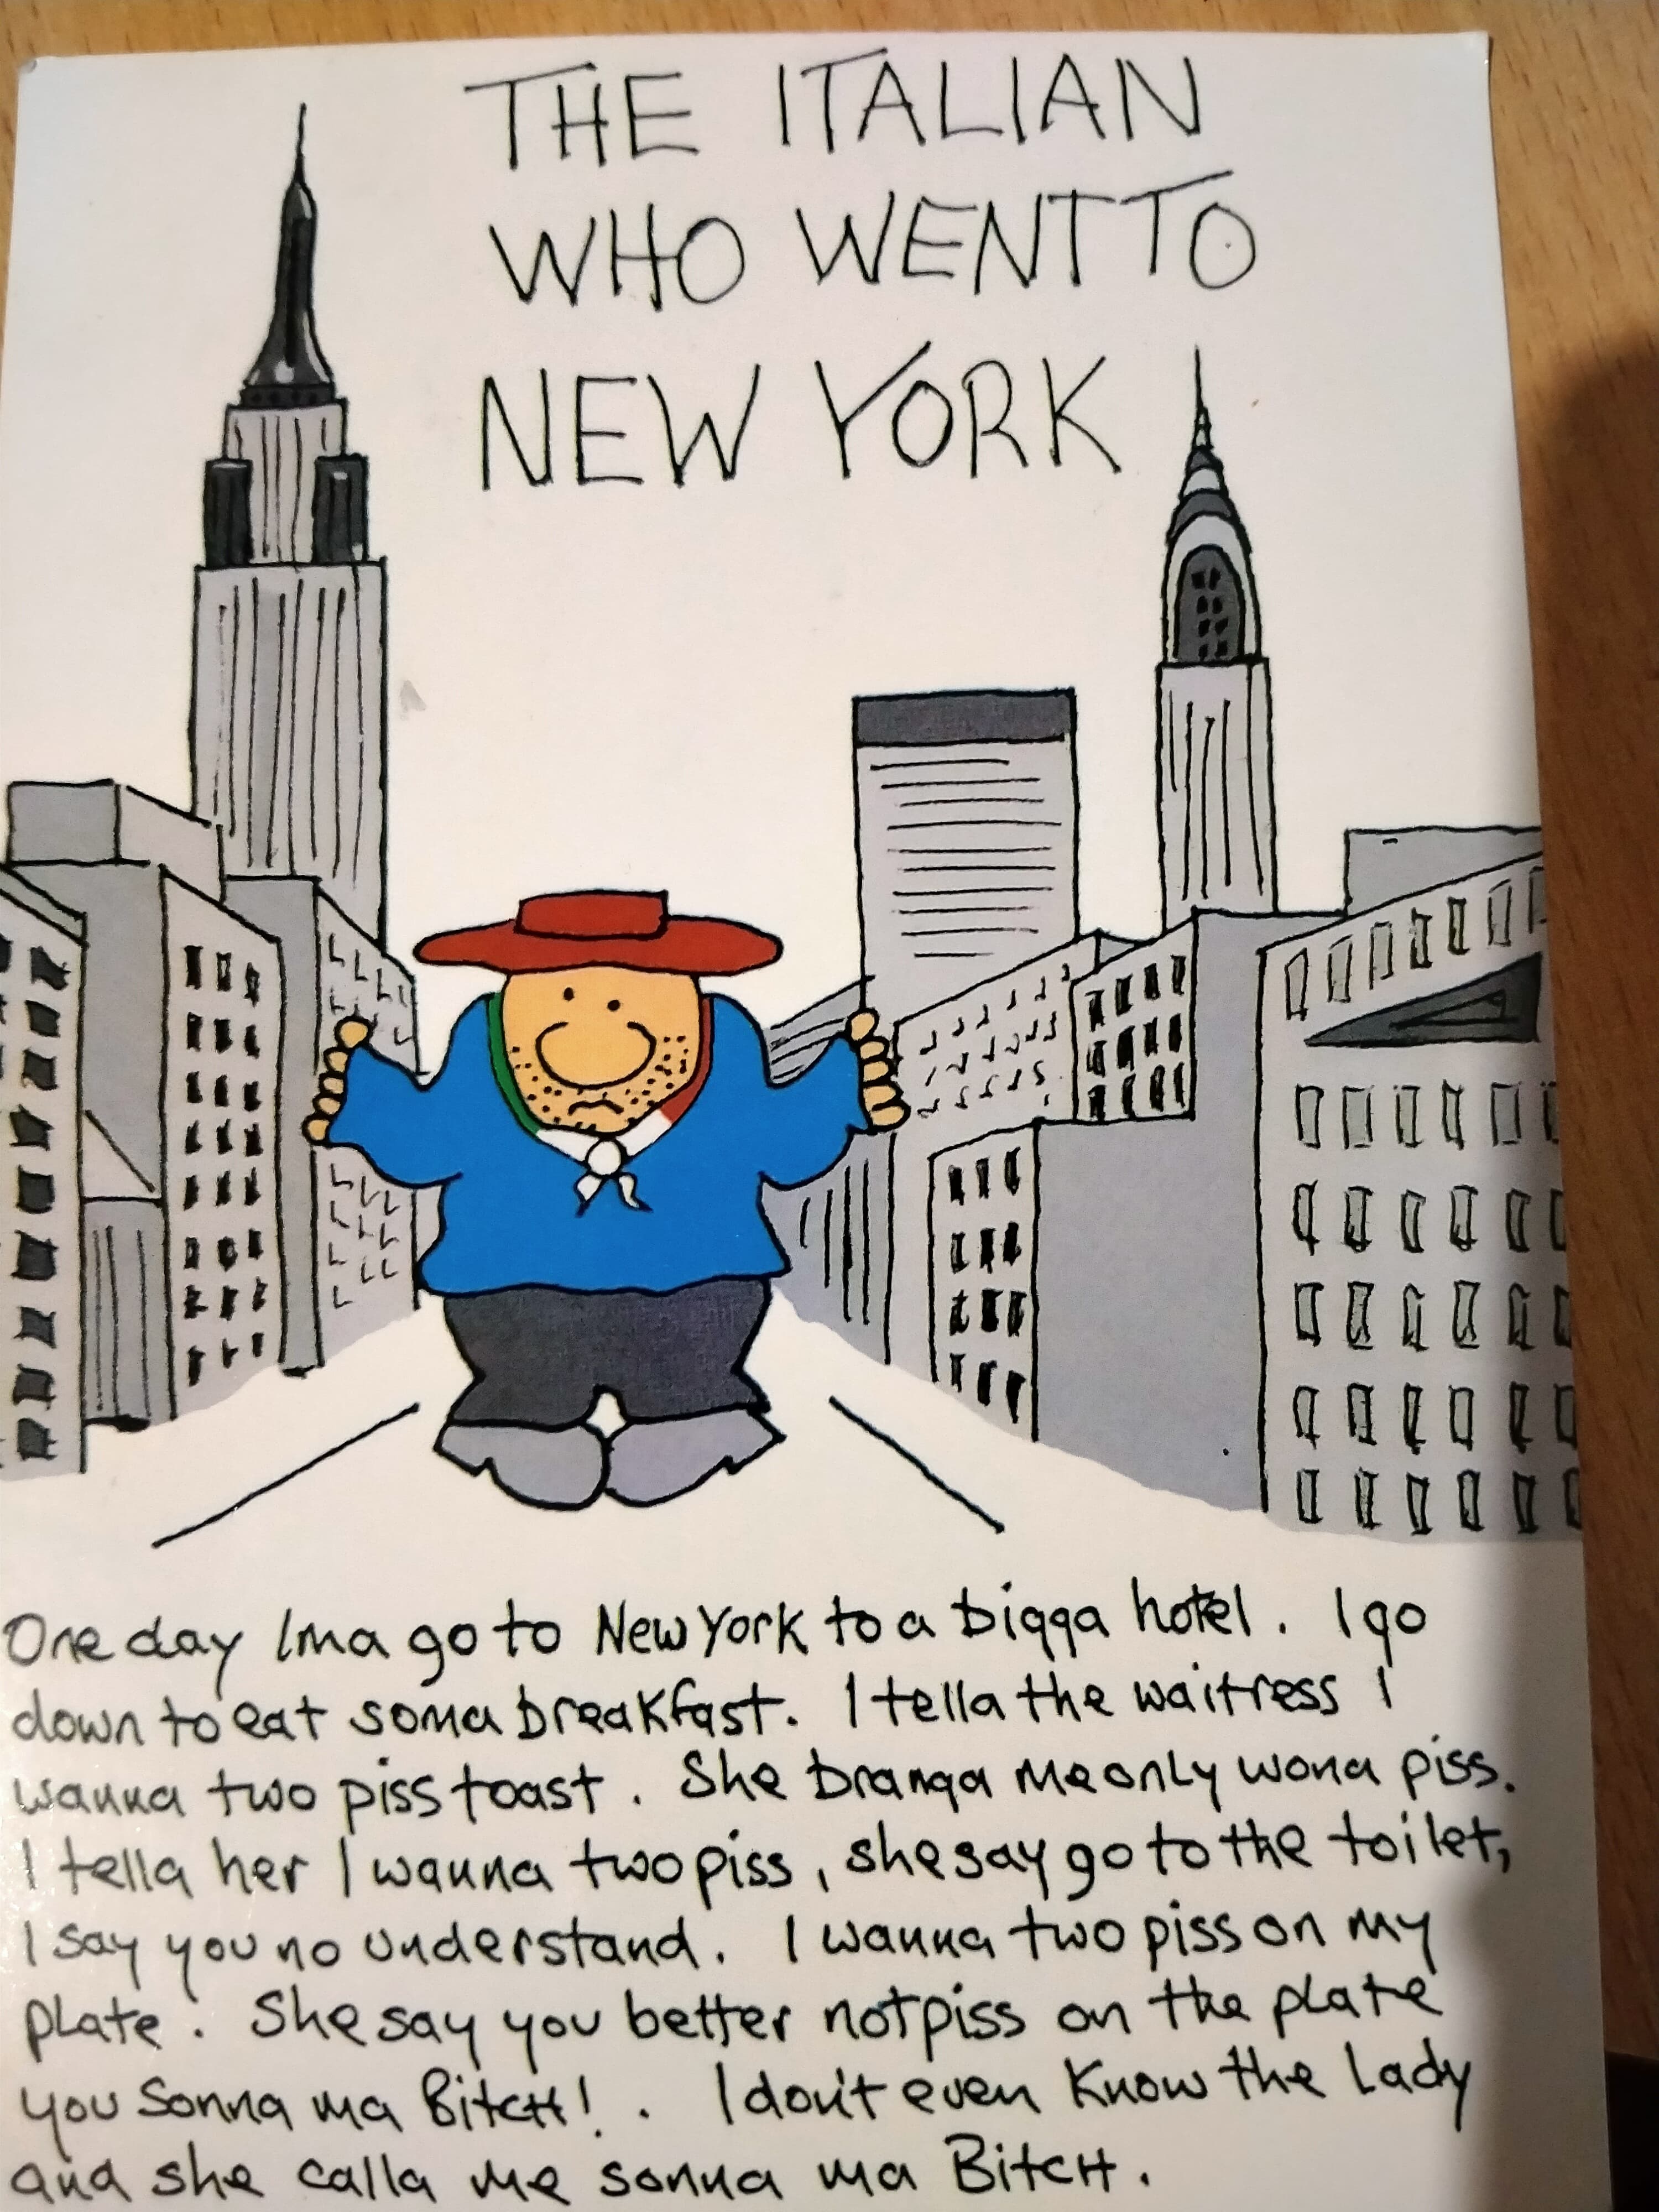 THE ITALIAN
WHO WENT TO
NEW YORK
One day Ima go to New York to a bigga hotel. I go
down to eat soma breakfast. I tella the waitress I
wanna two piss toast. She branga me only wona piss.
I tella her I wanna two piss, she say go to the toilet,
I say you no understand. I wanna two piss on my
plate. She say you better not piss on the plate
you Sonna ma Bitch!. I don't even know the Lady
and she calla me sonna ma Bitch.